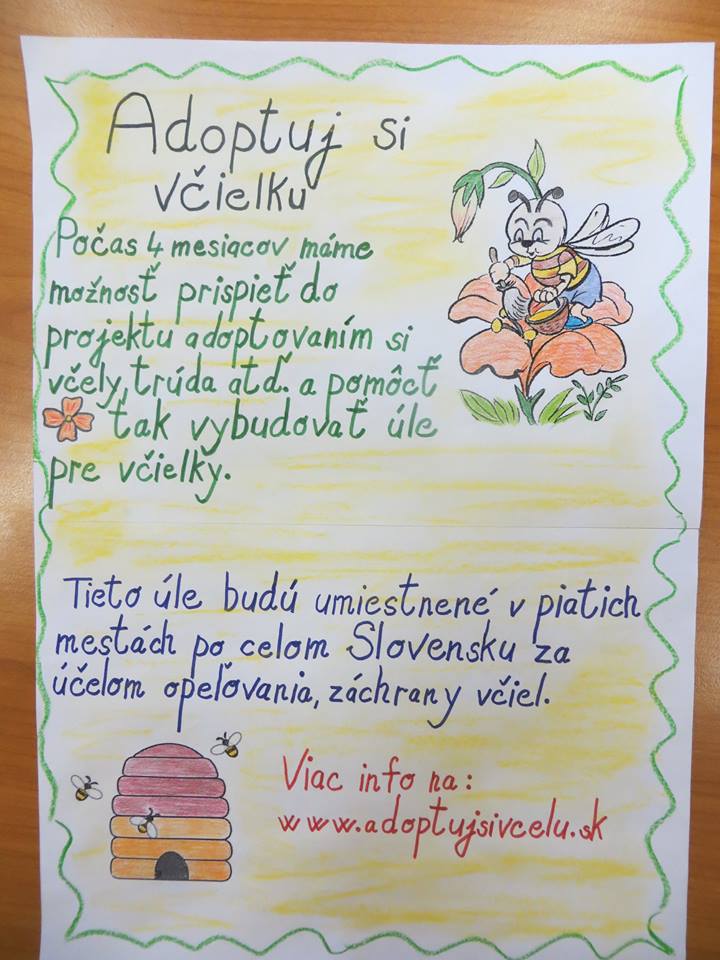 Adoptuj si
včielku
Počas 4 mesiacov máme
možnosť prispieť do
projektu adoptovaním si
včely, trúda atď. a pomôcť
tak vybudovať úle
pre včielky.
Tieto úle budú umiestnené v piatich
mestách po celom Slovensku za
účelom opeľovania, záchrany včiel.
Viac info na:
www.adoptujsivcelu.sk